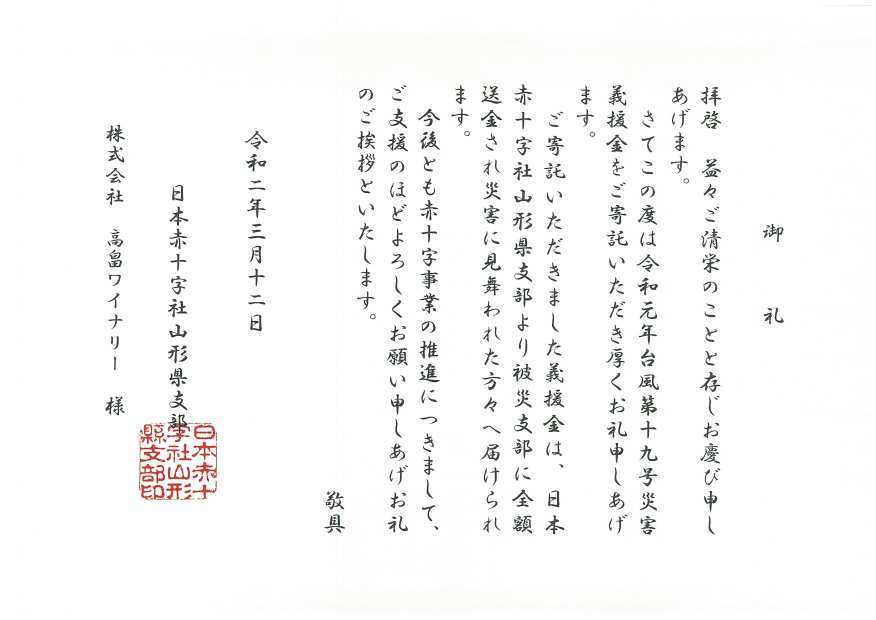 御　礼
拝啓　益々ご清栄のことと存じお慶び申し
あげます。
さてこの度は令和元年台風第十九号災害
義援金をご寄託いただき厚くお礼申しあげ
ます。
ご寄託いただきました義援金は、日本
赤十字社山形県支部より被災支部に全額
送金され災害に見舞われた方々へ届けられ
ます。
今後とも赤十字事業の推進につきまして、
ご支援のほどよろしくお願い申しあげお礼
のご挨拶といたします。
敬具
令和二年三月十二日
日本赤十字社山形県支部
日本赤十
字社山形
縣支部印
株式会社　高畠ワイナリー　様